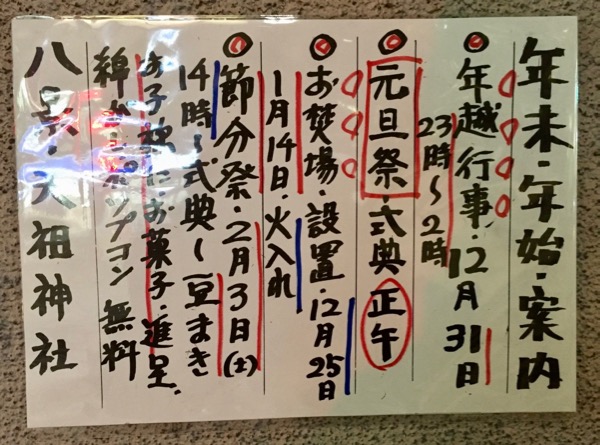 年末・年始・案内
◎年越行事・12月31日
23時〜2時
◎元旦祭・式典 正午
◎お焚場・設置・12月25日
1月14日・火入れ
◎節分祭・2月3日(土)
14時〜式典〜豆まき
お子様にお菓子・進呈.
綿あめ・ポップコン 無料
八景・天祖神社